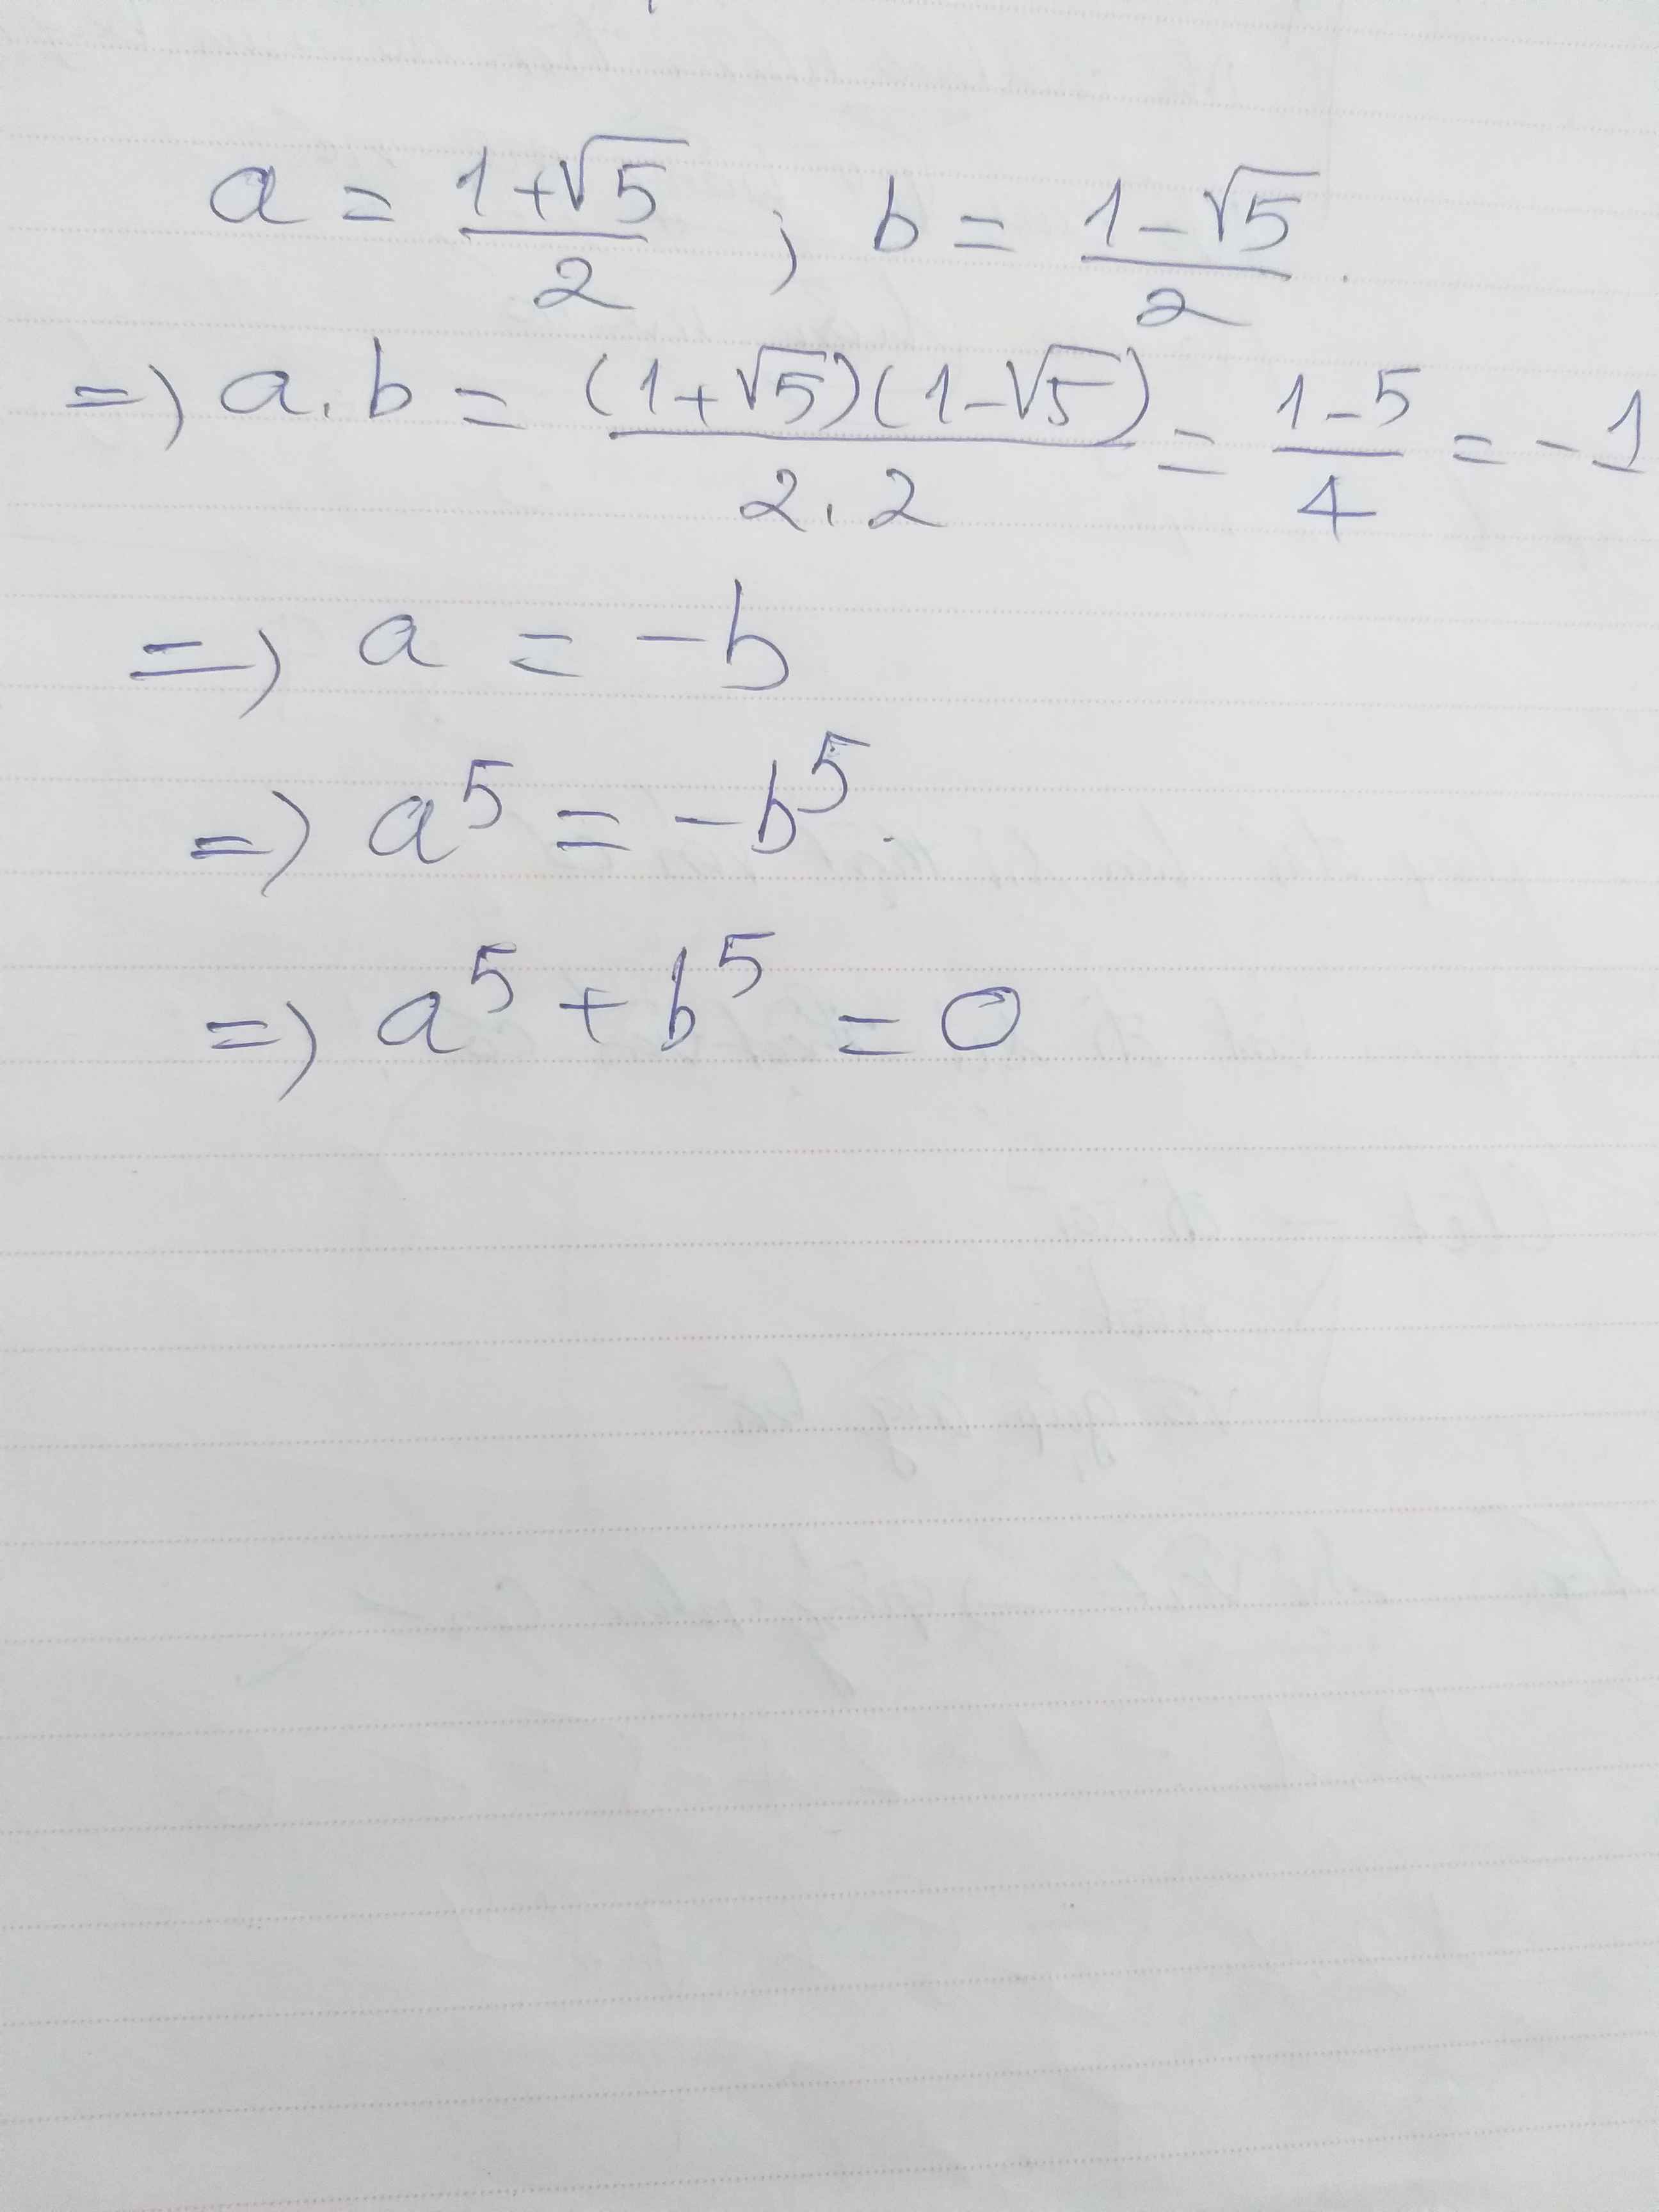 a = (1+√5)/2 ; b = (1-√5)/2 .
=> a.b = ((1+√5)(1-√5))/(2.2) = (1-5)/4 = -1
=> a = -b
=> a⁵ = -b⁵.
=> a⁵ + b⁵ = 0